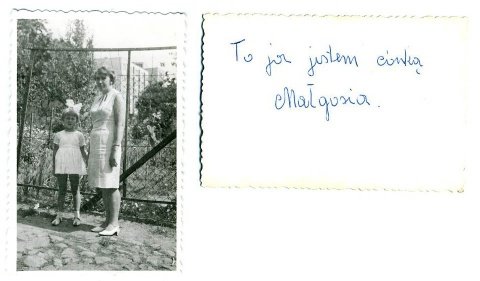 To ja jestem córką
Małgosia.